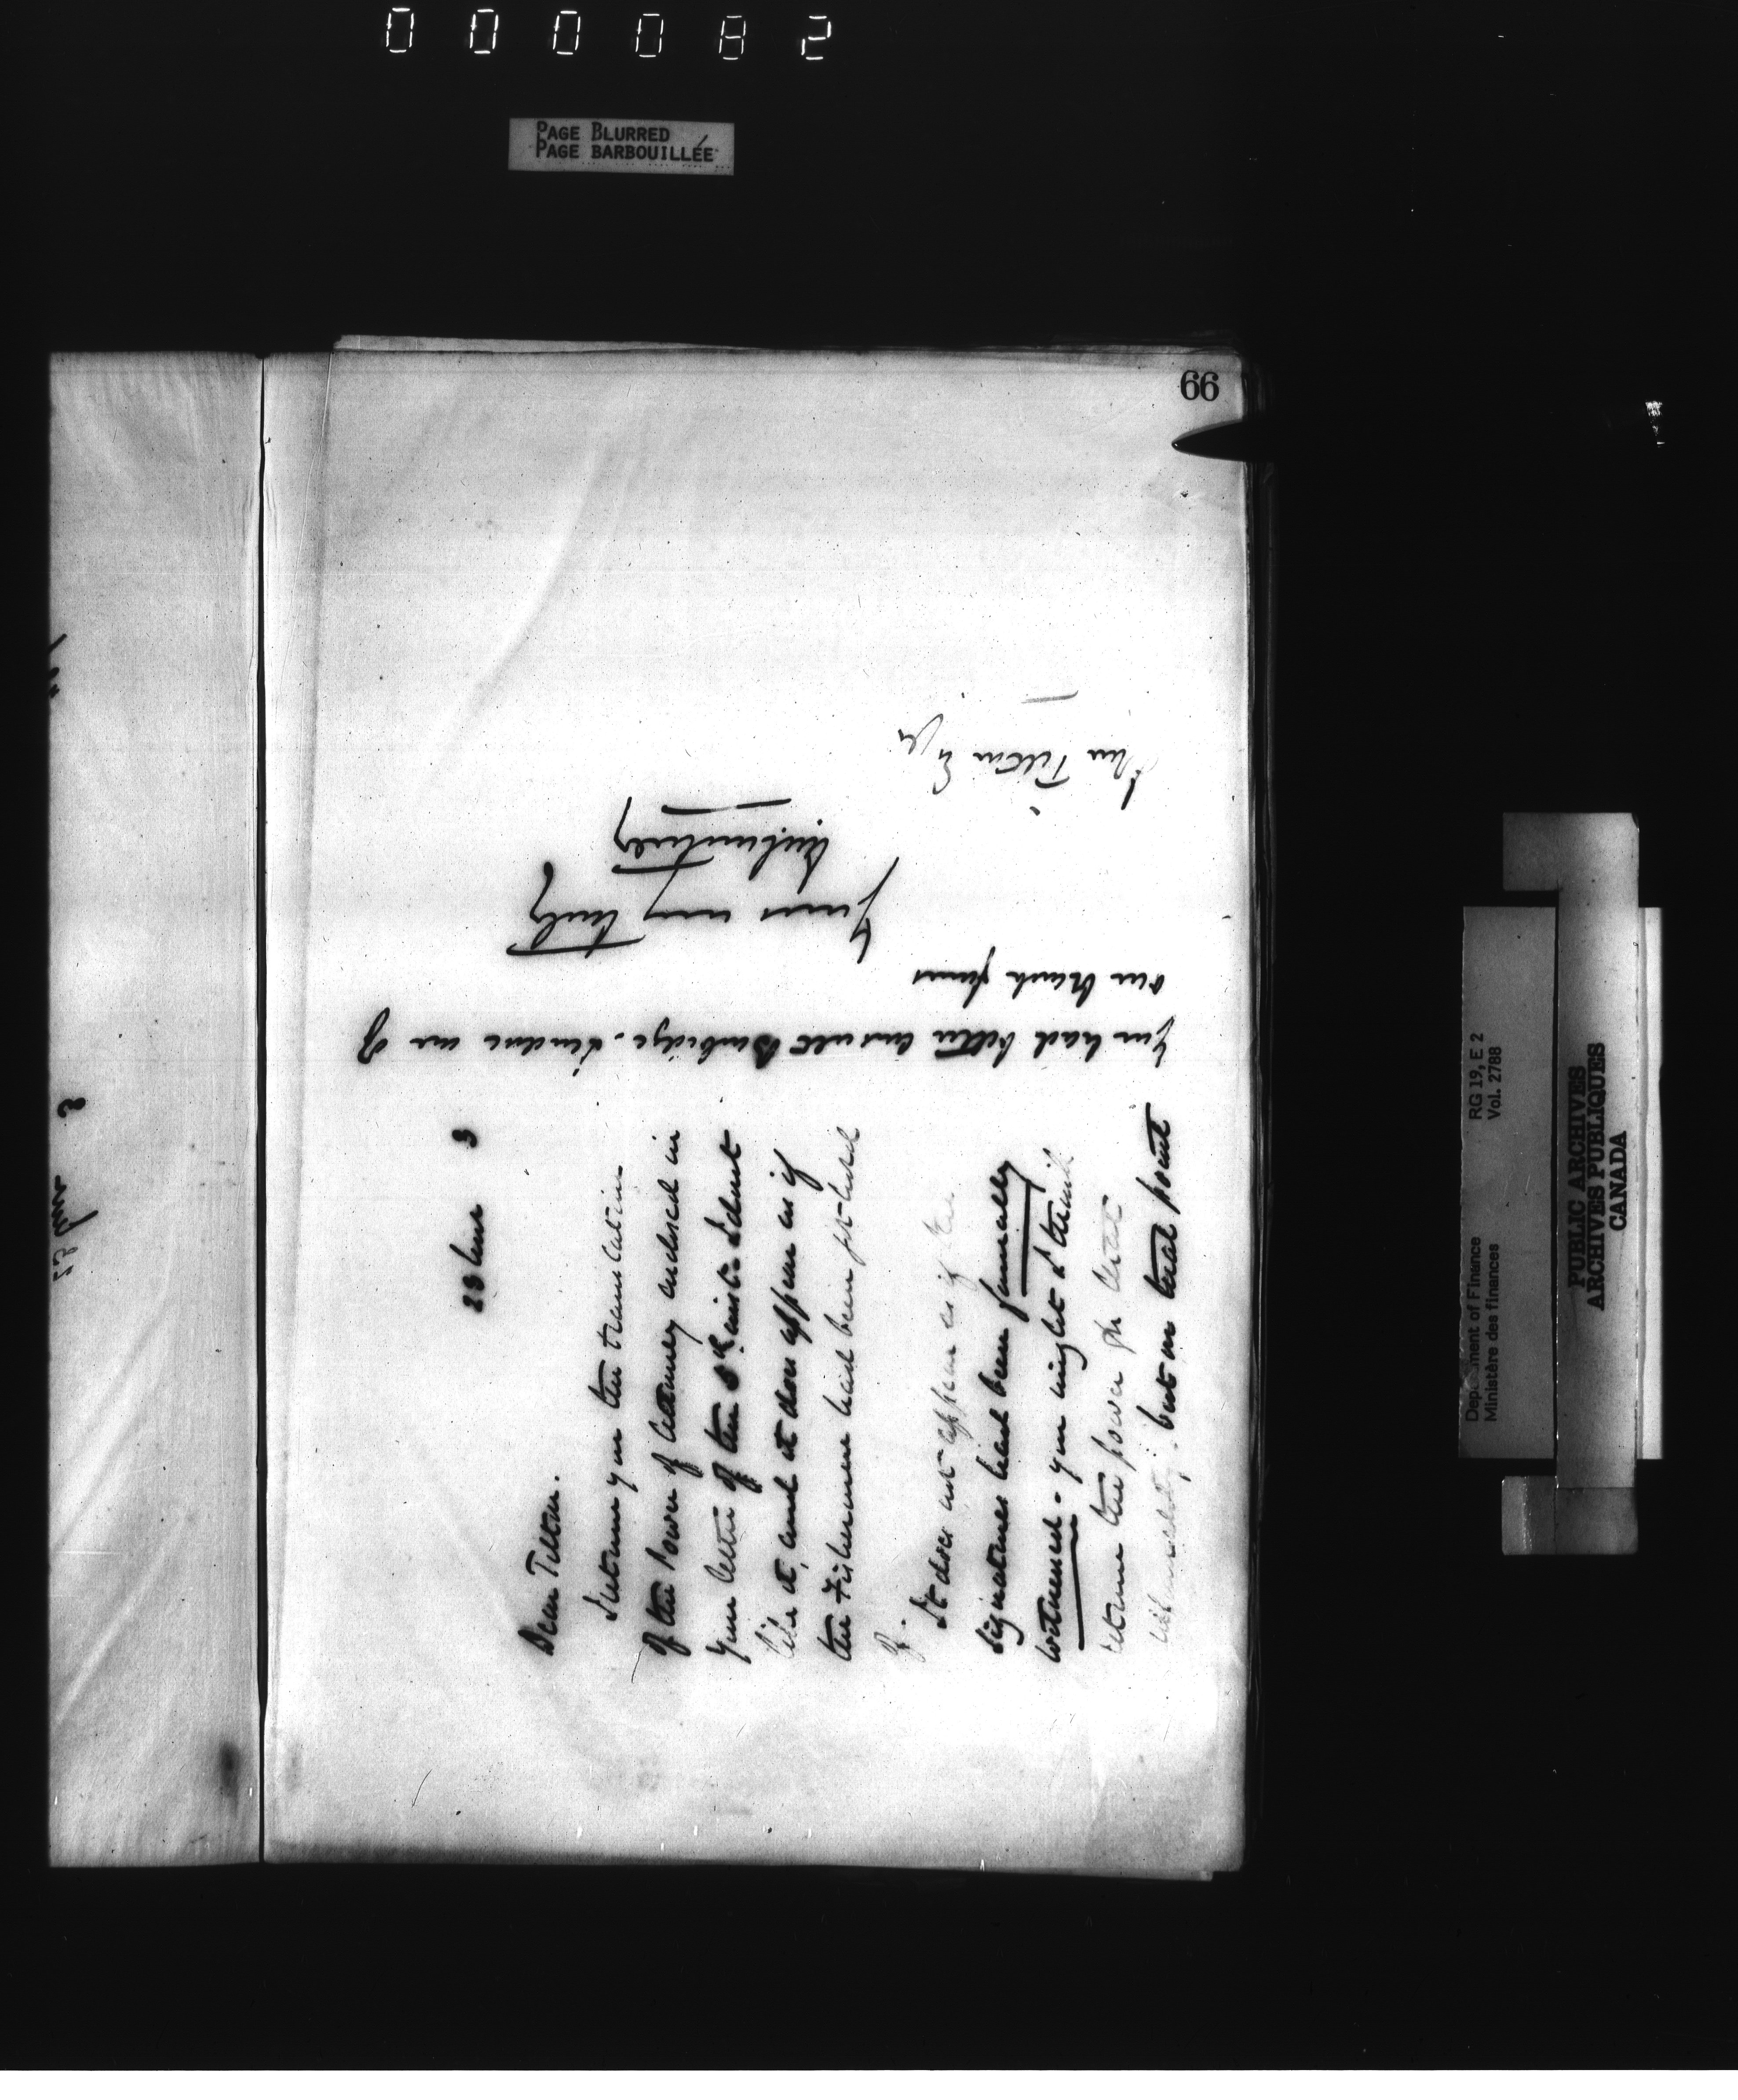 000082
PAGE BLURRED
PAGE BARBOUILLÉE
66
23 June 3
Dear Tilton.
I return you the translation
of the Power of Attorney enclosed in
your letter of the 8th inst. I dont
like it, and it does appear as if
the Fishermen had been
of.
It does not appear as if the
signatures had been formally
witnessed - you might I think
return the power for
but on that point
you had better consult Burbidge. I enclose one of
our Blank forms
Yours very truly
Tilton Esqr
23 June 3
Department of Finance
Ministère des finances
RG 19, E 2
Vol. 2788
PUBLIC ARCHIVES
ARCHIVES PUBLIQUES
CANADA